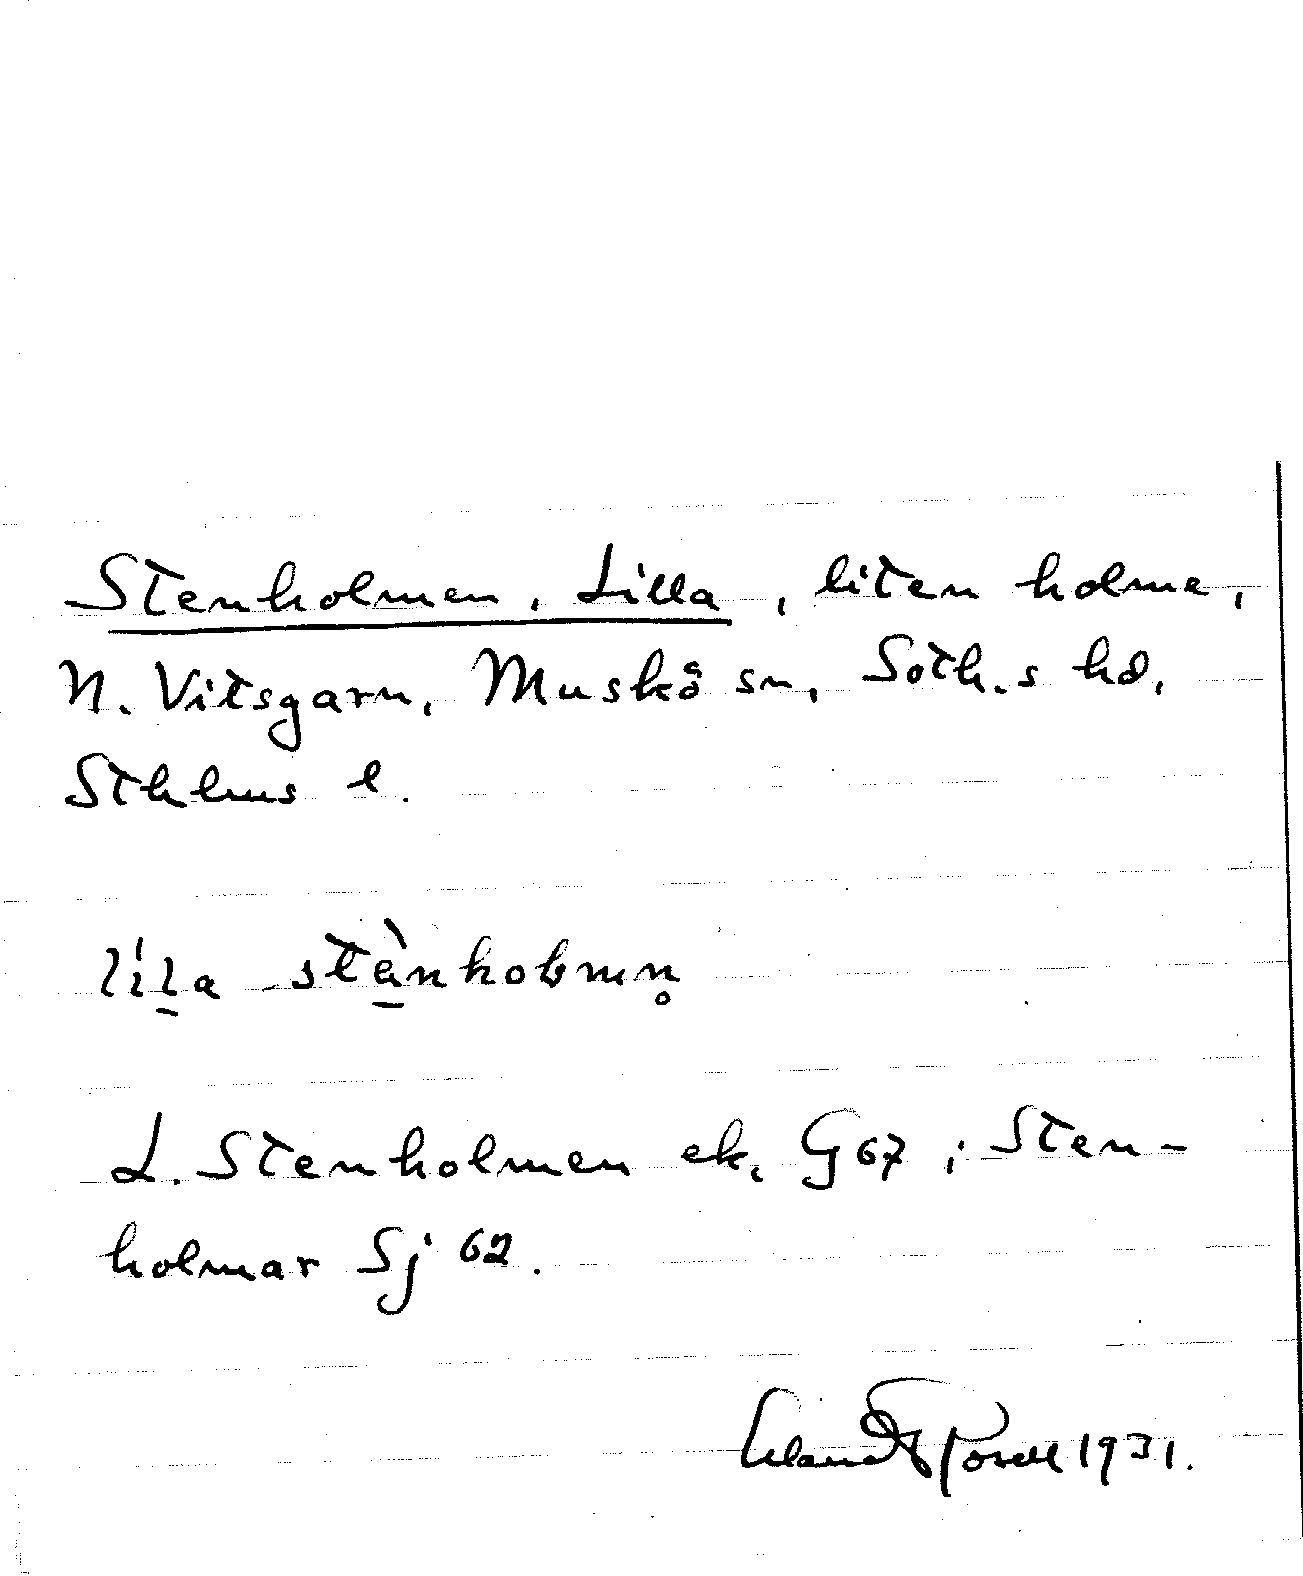 Stenholmen, Lilla, liten holme,
N. Vitsgarn, Muskö sn, Soth.s hd,
Sthlms l.
lila stànholmn̥
L. Stenholmen ek. G 67; Sten-
holmar Sj 62.
Erland Rosell 1931.